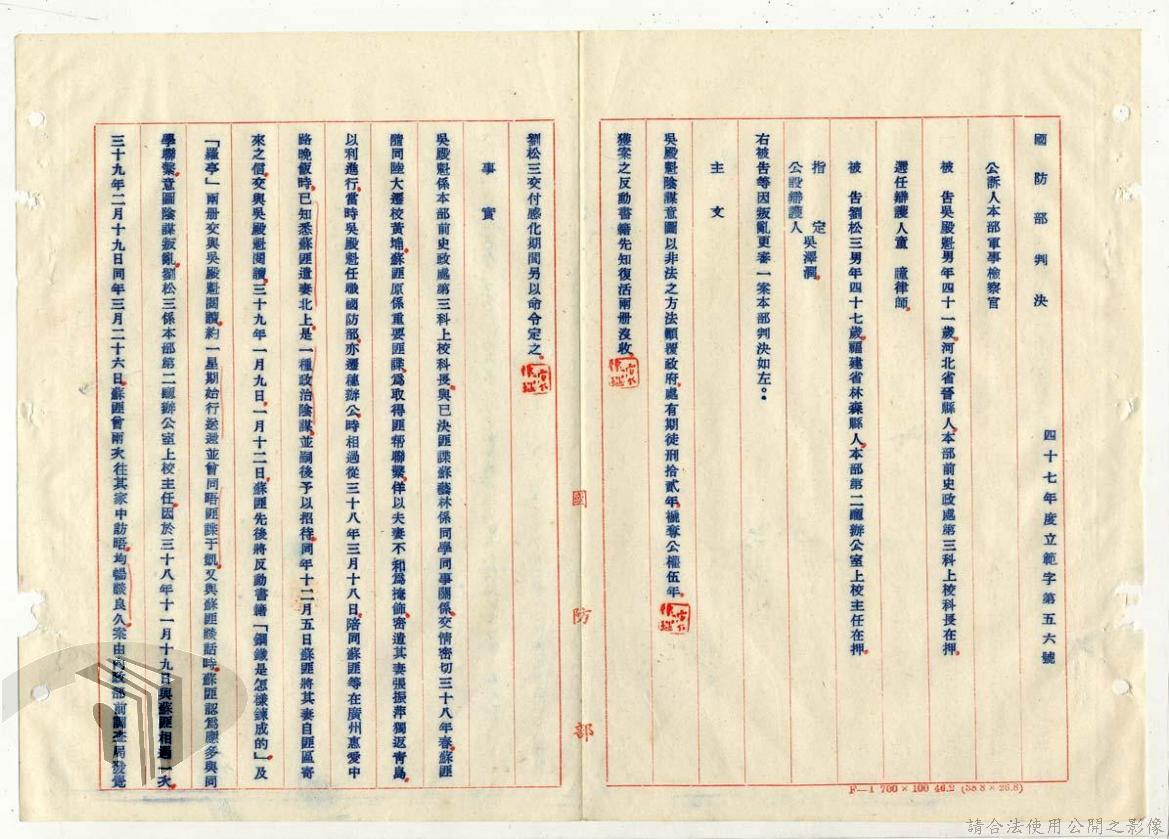 國防部判決
四十七年度立範字第五六號
公訴人本部軍事檢察官
被告吳殿魁男年四十一歲河北省晉縣人本部前史政處第三科上校科長在押
選任辯護人童瞳律師
被告劉松三男年四十七歲福建省林森縣人本部第二廳辦公室上校主任在押
指定
公設辯護人
吳澤澗
右被告等因叛亂更審一案本部判決如左。
主文
吳殿魁陰謀意圖以非法之方法顛覆政府處有期徒刑拾貳年褫奪公權伍年
獲案之反動書籍先知復活兩册沒收
劉松三交付感化期間另以命令定之
事實
吳殿魁係本部前史政處第三科上校科長與已決匪諜蘇藝林係同學同事關係交情密切三十八年春蘇匪
隨同陸大遷校黃埔蘇匪原係重要匪諜為取得匪幫聯繫佯以夫妻不和為掩飾密遣其妻張振萍獨返青島
以利進行當時吳殿魁任職國防部亦遷穗辦公時相過從三十八年三月十八日陪同蘇匪等在廣州惠愛中
路晚飯時已知悉蘇匪遣妻北上是一種政治陰謀並嗣後予以招待同年十二月五日蘇匪將其妻自匪區寄
來之信交與吳殿魁閱讀三十九年一月九日一月十二日蘇匪先後將反動書籍「鋼鐵是怎樣鍊成的」及
「羅亭」兩册交與吳殿魁閱讀約一星期始行送還並曾同晤匪諜于凱又與蘇匪談話時蘇匪認為應多與同
學聯繫意圖陰謀叛亂劉松三係本部第二廳辦公室上校主任因於三十八年十一月十九日與蘇匪相遇一次
三十九年二月十九日同年三月二十六日蘇匪曾兩次往其家中訪晤均暢談良久案由內政部前調查局發覺
國防部
F—1 700×100 46.2 (38.8×26.8)
請合法使用公開之影像